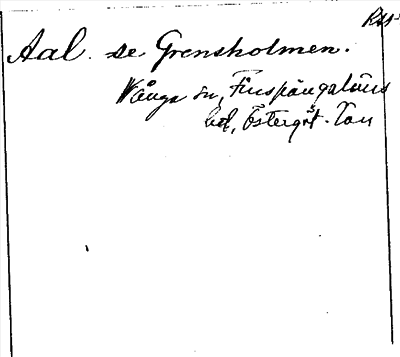 Aal. se Grensholmen.
Vånga sn, Finspångaläns
hd, Östergöt. lan